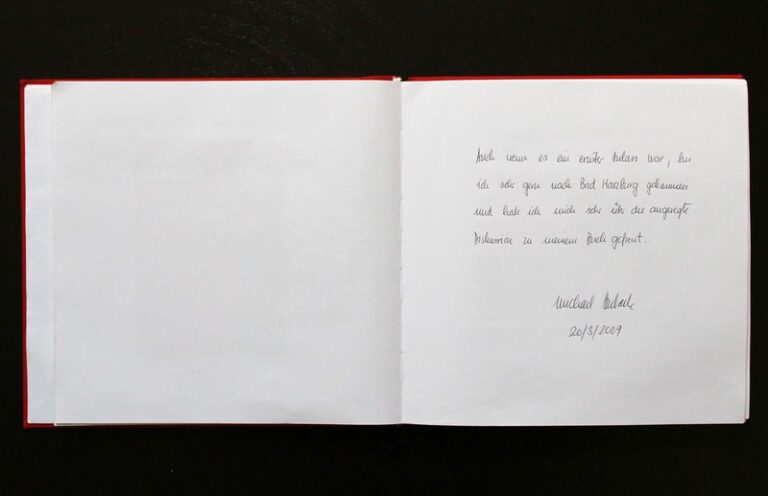 Auch wenn es ein ernster Anlass war, bin
ich sehr gern nach Bad Harzburg gekommen
und hab ich mich sehr über die angeregte
Diskussion zu meinem Buch gefreut.
Michael Buback
20/3/2009